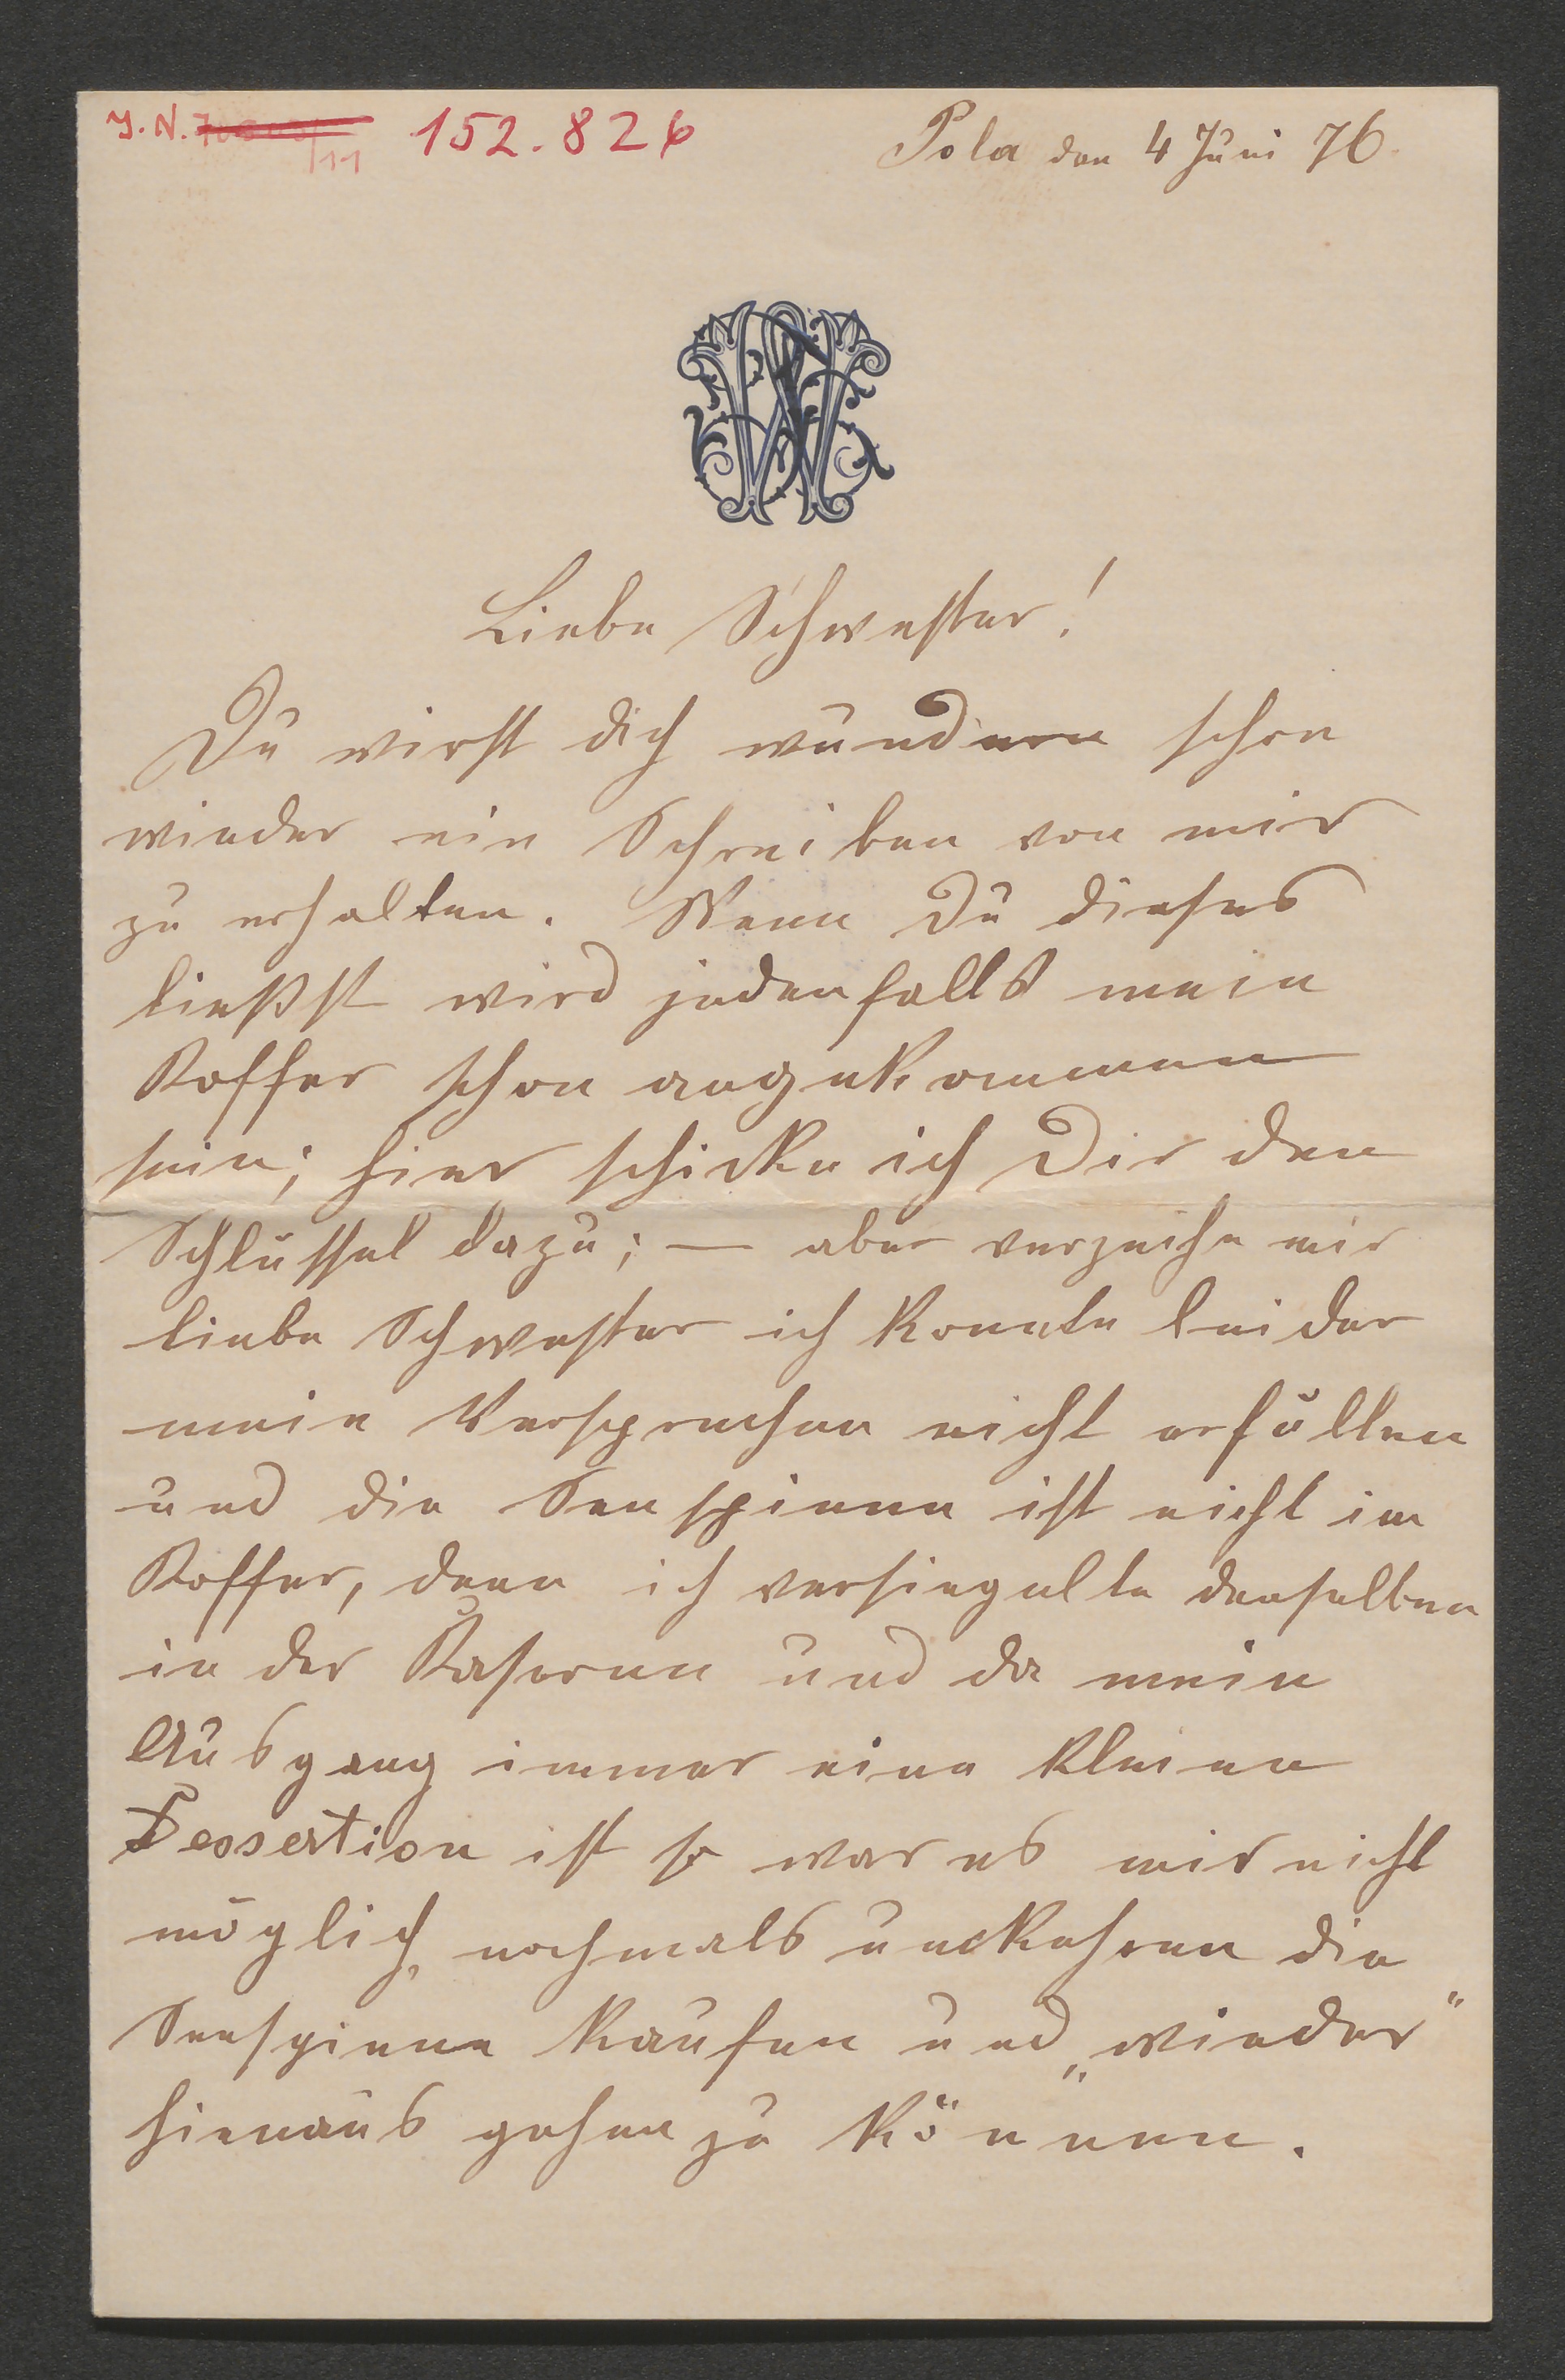 J. N. 152.826
Pola den 4 Juni 76.
Liebe Schwester!
Du wirst dich wundern schon
wieder ein Schreiben von mir
zu erhalten. Wenn Du dieses
ließst wird jedenfalls mein
Koffer schon angekommen
sein; hier schicke ich Dir den
Schlüssel dazu; — aber verzeihe mir
liebe Schwester ich konnte leider
mein Versprechen nicht erfüllen
und die Seespinne ist nicht im
Koffer, denn ich versiegelte denselben
in der Kaserne und da mein
Ausgang immer eine kleine
Dessertion ist so war es mir nicht
möglich, nochmals umkehren die
Seespinne kaufen und „wieder“
hinaus gehen zu können.